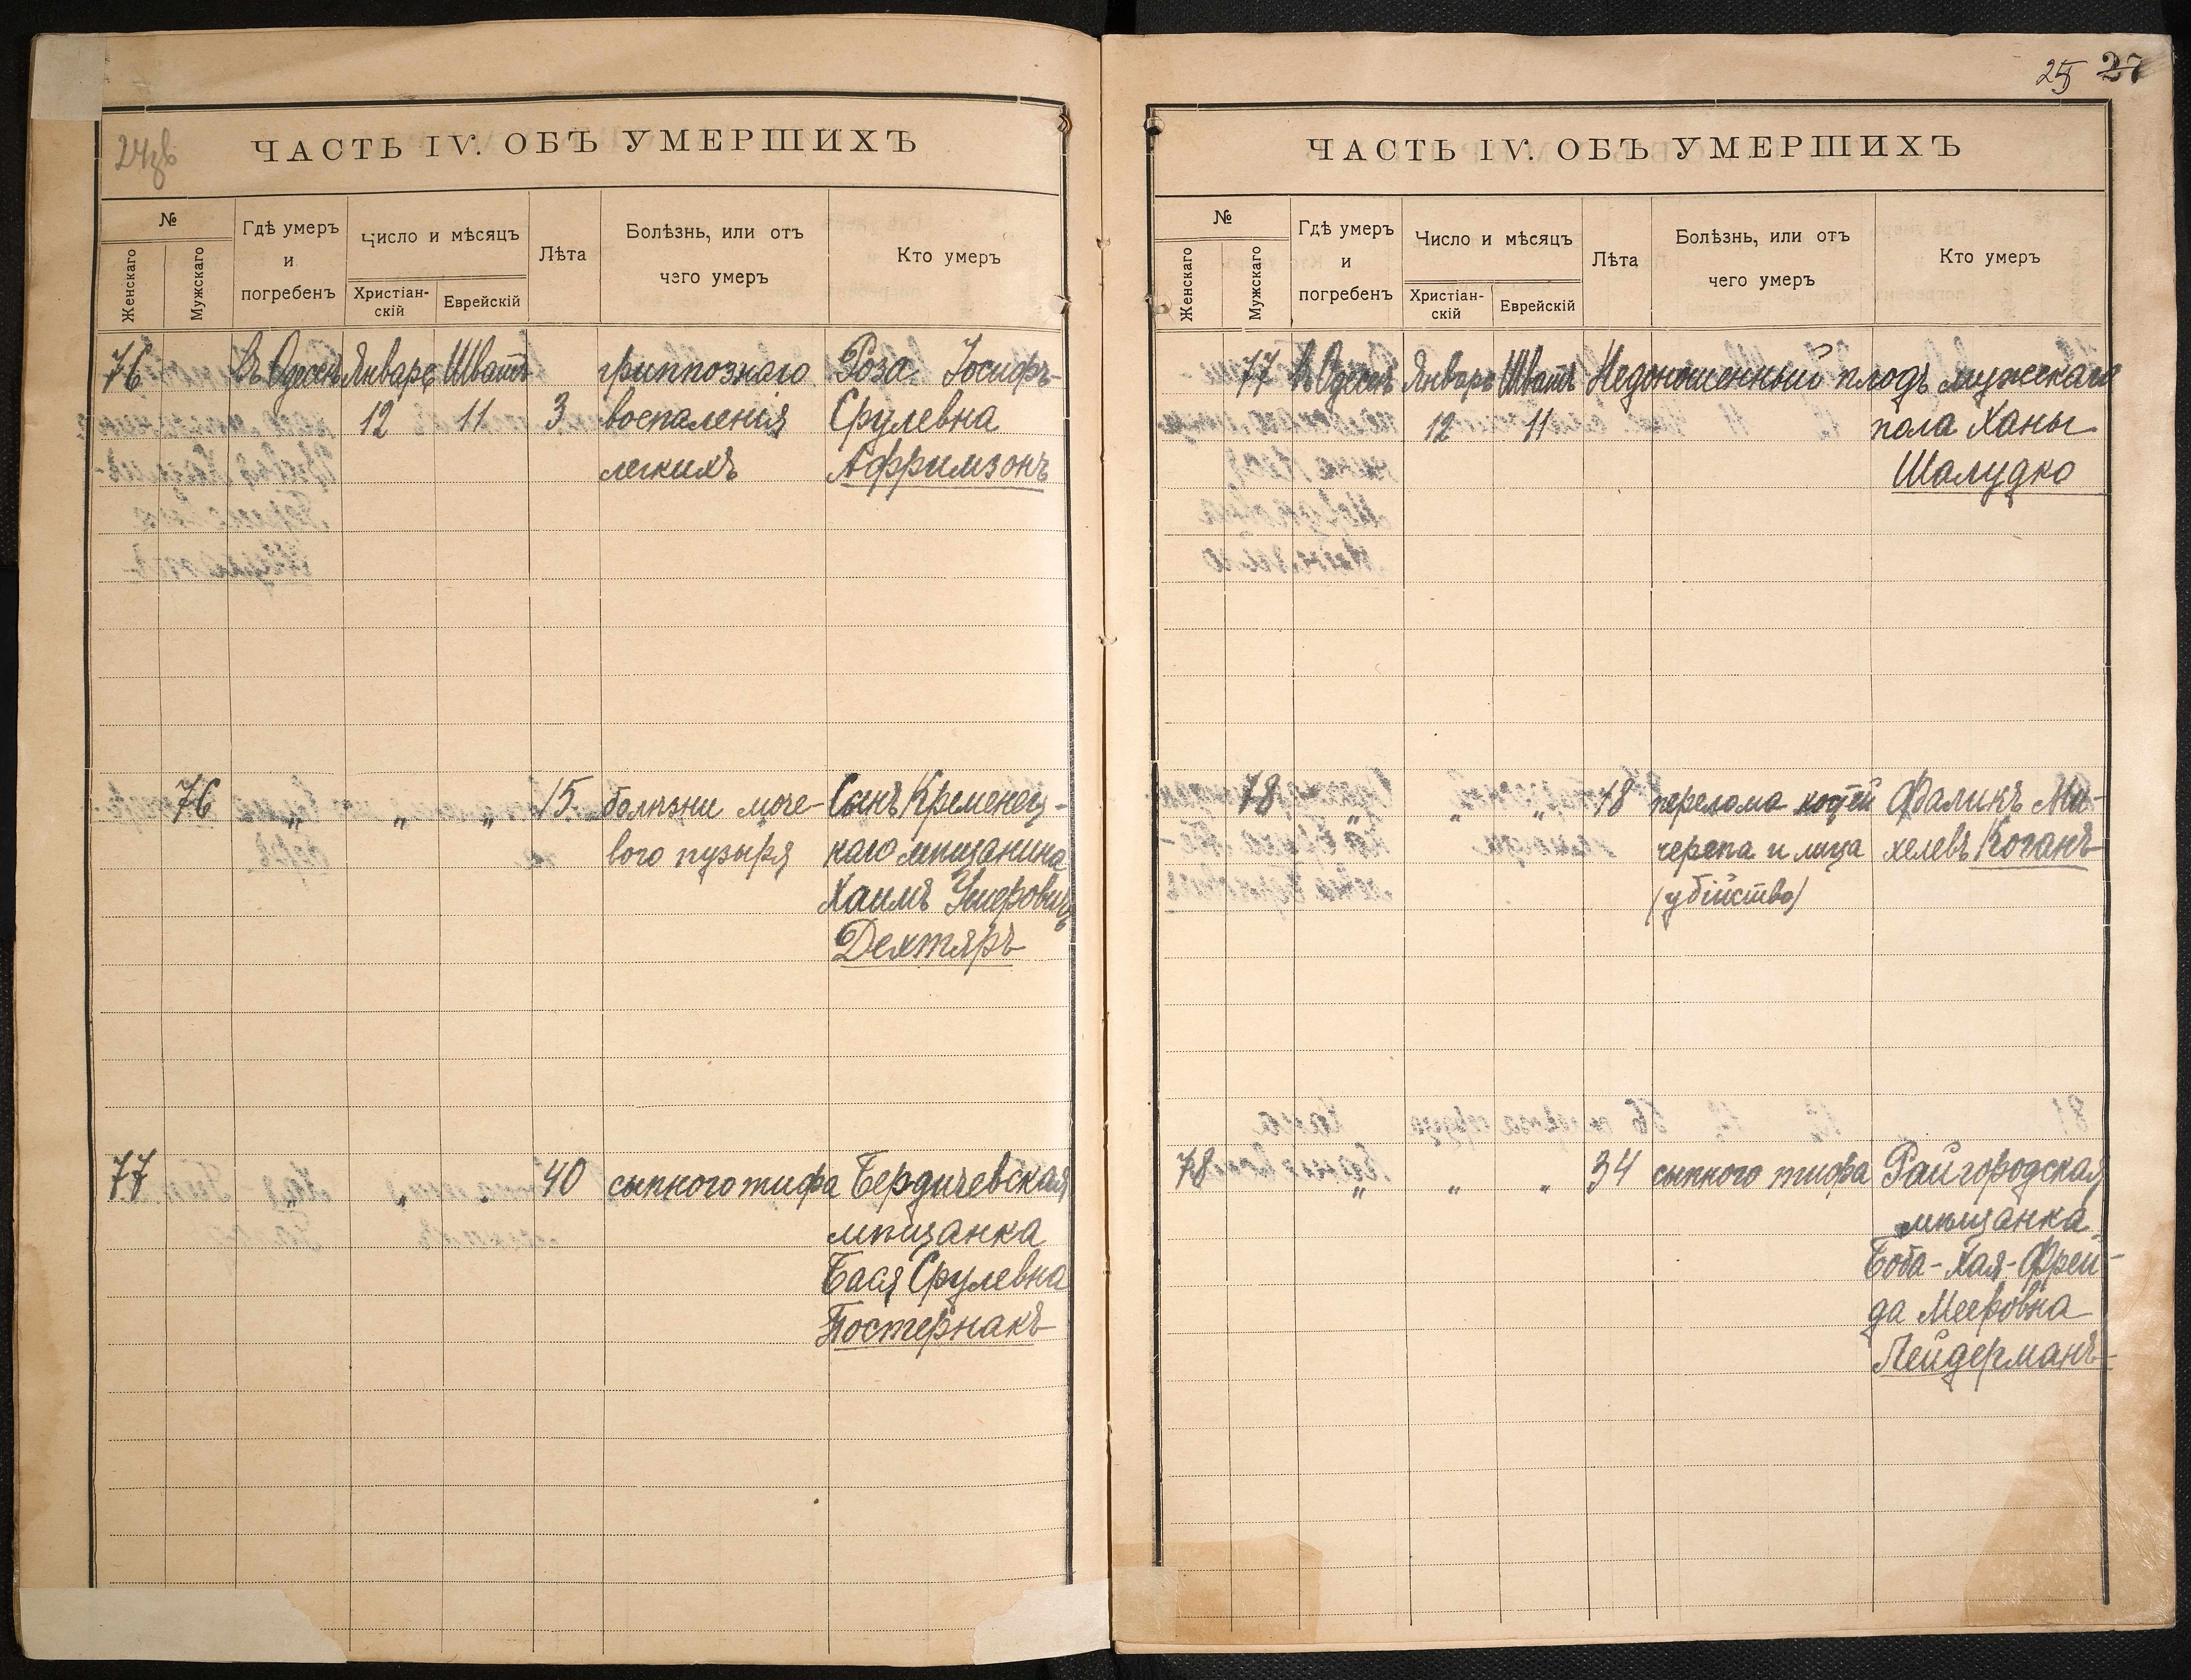 24зв
ЧАСТЬ IV. ОБЪ УМЕРШИХЪ
№
Женскаго
Мужскаго
Гдѣ умеръ
и
погребенъ
Число и мѣсяцъ
Христіан-
скій
Еврейскій
Лѣта
Болѣзнь, или отъ
чего умеръ
Кто умеръ
76 въ Одессѣ Январь Шватъ гриппознаго Роза Іосифъ-
12 11 3 воспаленія Срулевна
легкихъ Афримзонъ
76 " " " 15 болѣзни моче- Сынъ Кременец-
вого пузыря каго мѣщанина
Хаимъ Умеровичъ
Дехтяръ
77 " " " 40 сыпного тифа Бердичевская
мѣщанка
Бася Срулевна
Постернакъ
25 27
ЧАСТЬ IV. ОБЪ УМЕРШИХЪ
№
Женскаго
Мужскаго
Гдѣ умеръ
и
погребенъ
Число и мѣсяцъ
Христіан-
скій
Еврейскій
Лѣта
Болѣзнь, или отъ
чего умеръ
Кто умеръ
77 въ Одессѣ Январь Шватъ Недоношенный плодъ мужскаго
12 11 пола Ханы
Шалудко
78 " " " 18 перелома костей Фаликъ Ми-
черепа и лица хелевъ Коганъ
(убійство)
78 " " " 34 сыпного тифа Райгородская
мѣщанка
Боба-Хая-Фрей-
да Мееровна
Лейдерманъ